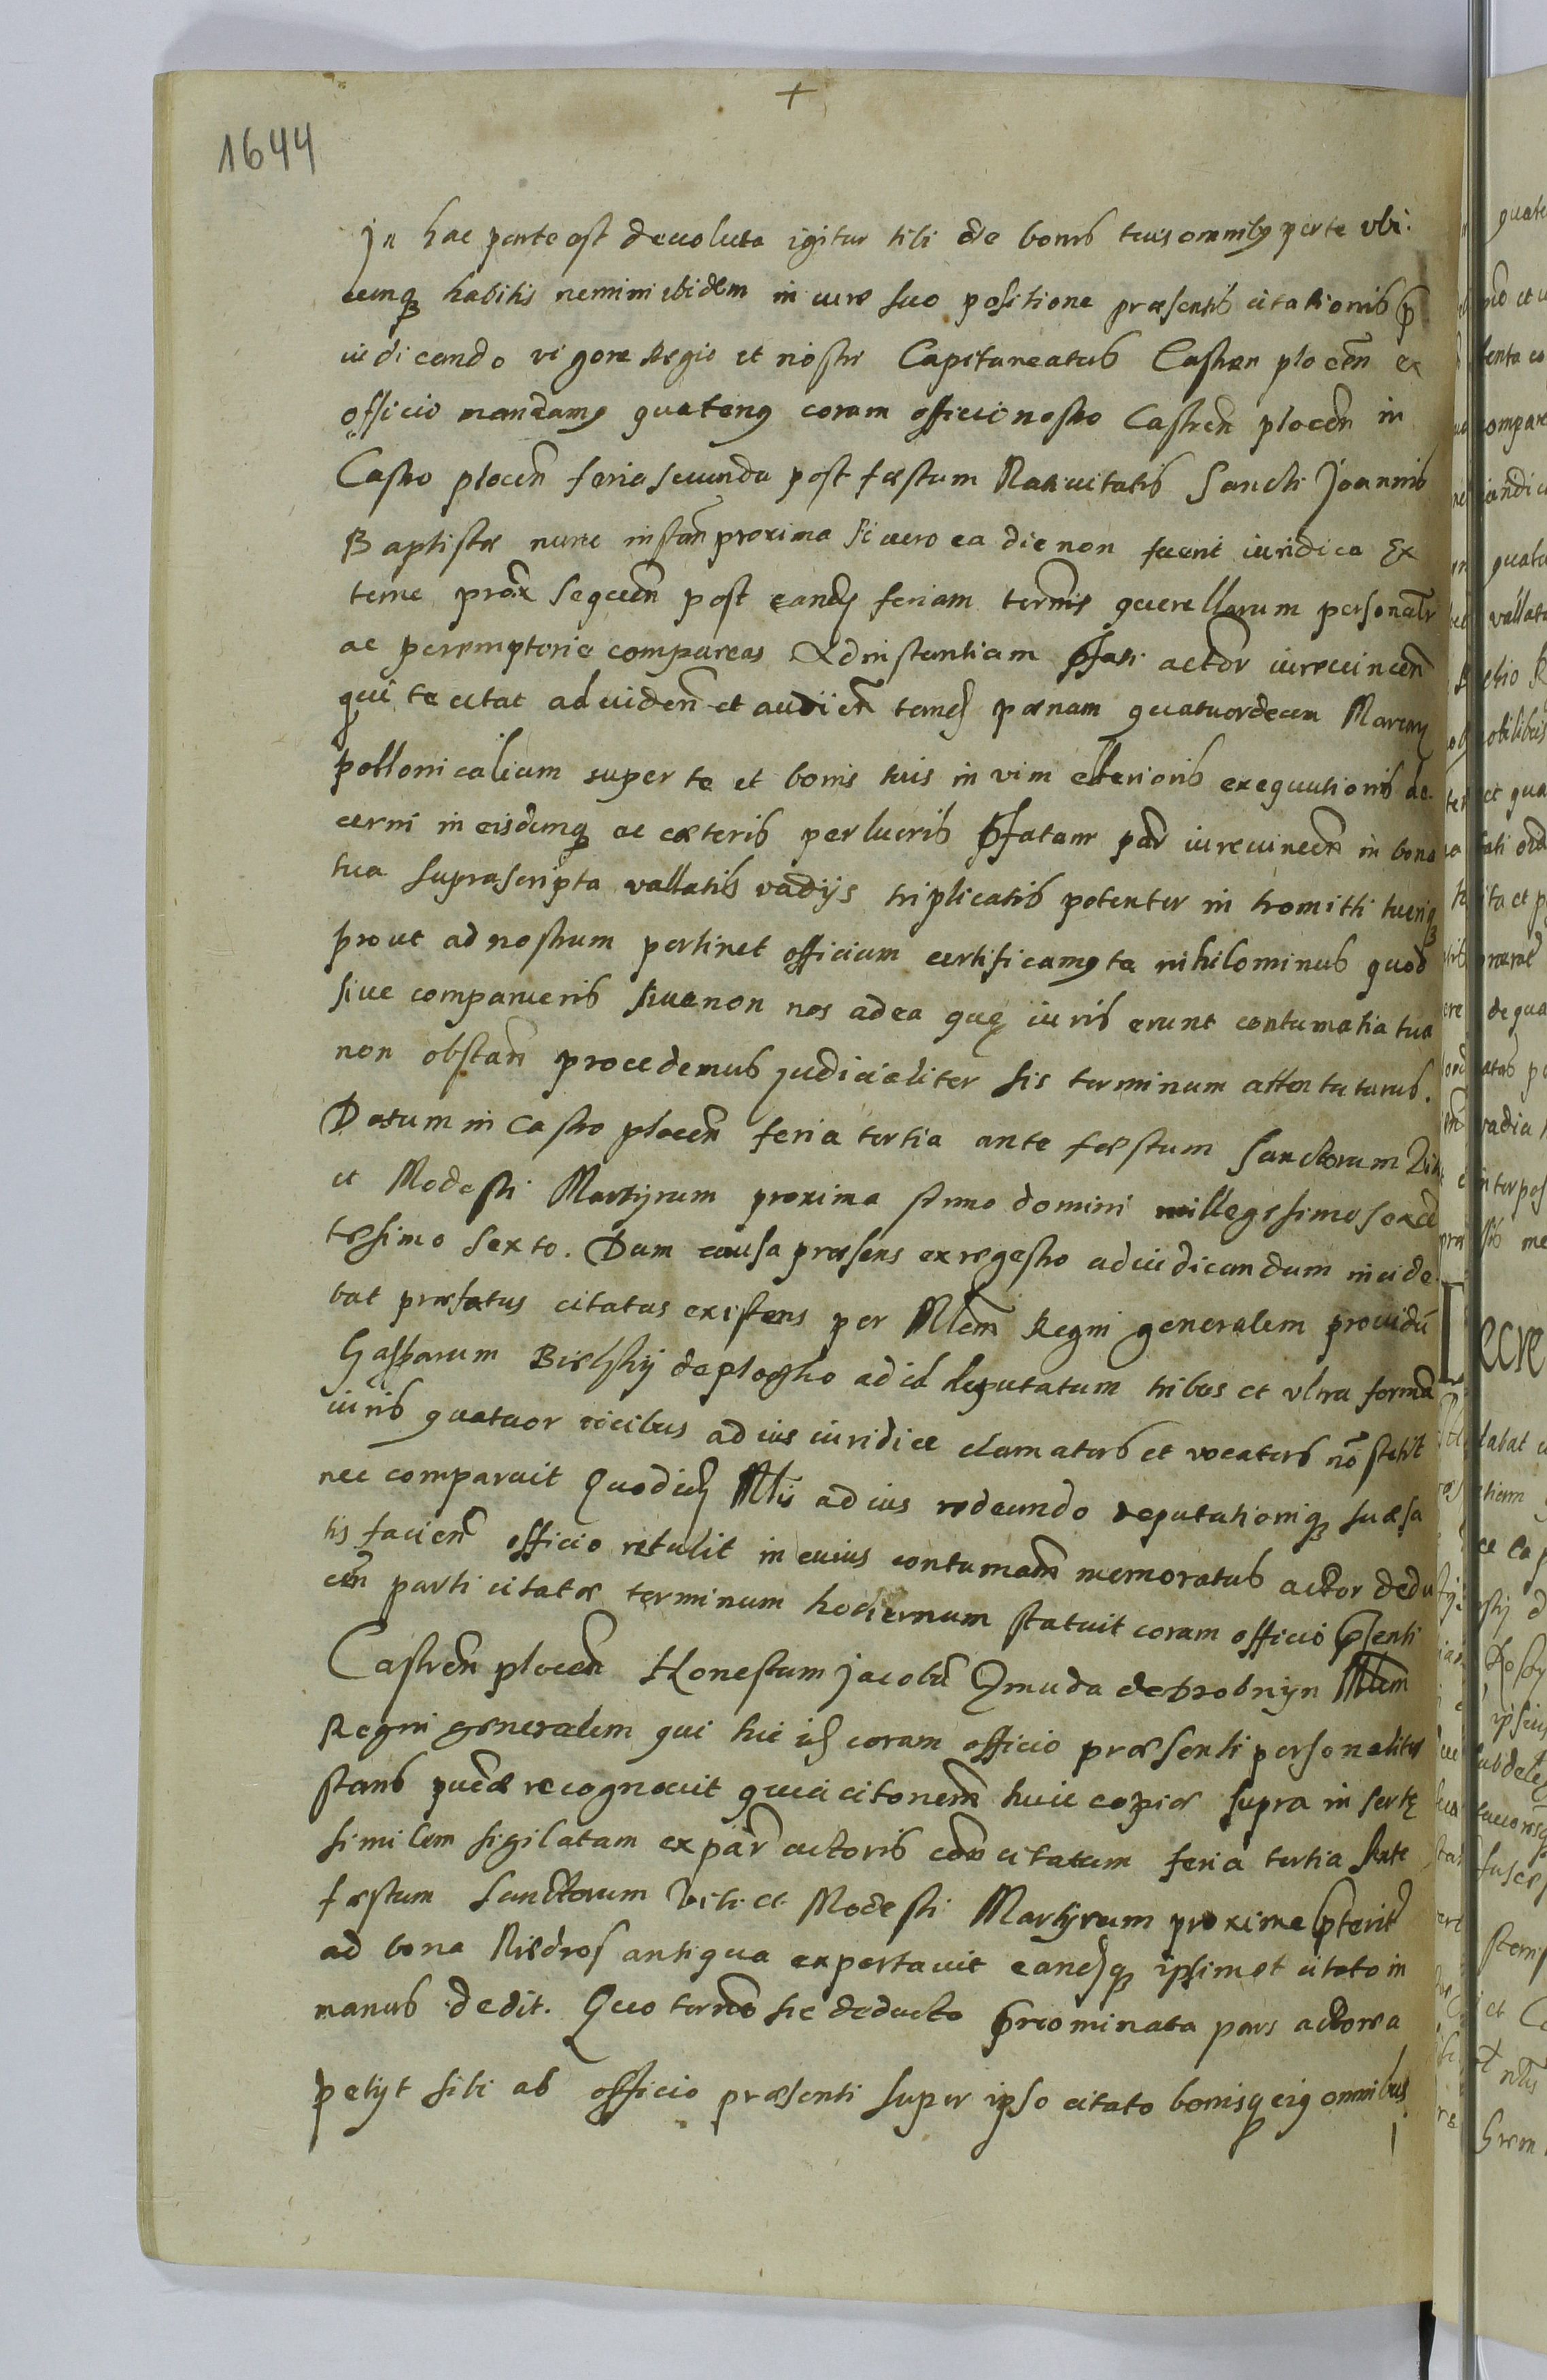 +
1644
In hac parte est devoluta igitur tibi de bonis tuis omnibꝫ per te vbi.
cunqꝫ habitis nemini ibidem in iure suo positione præsentis citationis p̄
iudicando vigore Regio et nostri Capitaneatus Castren plocen̄ ex
officio mandamꝫ quatenꝫ coram officio nostro Castren̄ plocen̄ in
Castro plocen̄ feria secunda post festum Natiuitatis Sancti Joannis
Baptistæ nunc instan̄ proxima si uero ea die non fuerit iuridica Ex
tunc prox̄ sequen̄ post eandꝫ feriam terminis querellarum personalr̄
ac peremptorie compareas Ad instantiam p̄fati actor̄ iureuincen̄
qui te citat ad uiden̄ et audien̄ tandꝫ pœnam quatuordecem Marcarꝫ
pollonicalium super te et bonis tuis in vim vlterioris exequutionis de.
cerni in eisdemqꝫ ac cæteris per lucris p̄fatam par̄ iureuincen̄ in bona
tua suprascripta vallatis vadijs triplicatis potenter intromitti tueriqꝫ
prout ad nostrum pertinet officium certificamꝫ te nihilominus quod
siue comparueris siue non nos ad ea quę iuris erunt contumatia tua
non obstan̄ procedemus judicialiter sis terminum attentaturus.
Datum in Castro plocen̄ feria tertia ante festum Sanctorum Viti
et Modesti Martyrum proxima Anno domini millegesimo sexcen̄
tesimo sexto. Dum causa præsens ex regestro ad iudicandum incide.
bat præfatus citatus existens per Mlem̄ Regni generalem prouidū
Gasparum Bielskij de plogsko ad id deputatum tribus et vltra formā
iuris quatuor vicibus ad ius iuridice clamatus et vocatus nō stetit
nec comparuit Quod idꝫ Mlis ad ius redeundo deputationiqꝫ suæ sa
tis facien̄ officio retulit in cuius contumatiam memoratus actor dedu
cen̄ parti citatæ terminum hodiernum statuit coram officio p̄senti
Castren̄ plocen̄ Honestum Jacobū Zmuda de Drobnijn Mlem
Regni generalem qui hic idꝫ coram officio præsenti personaliter
stans recognouit quia citonem̄ huic copiæ supra insertę
similem sigilatam ex par̄ actoris con̄ citatum feria tertia Ante
festum Sanctorum Viti et Modesti Martyrum proxime p̄terit̄
ad bona Niedros antiqua exportauit eandꝫqꝫ ipsimet citato in
manus dedit. Quo termō sic deducto p̄nominata pars actorea
petijt sibi ab officio præsenti super ipso citato bonisqꝫ eiꝫ omnibus